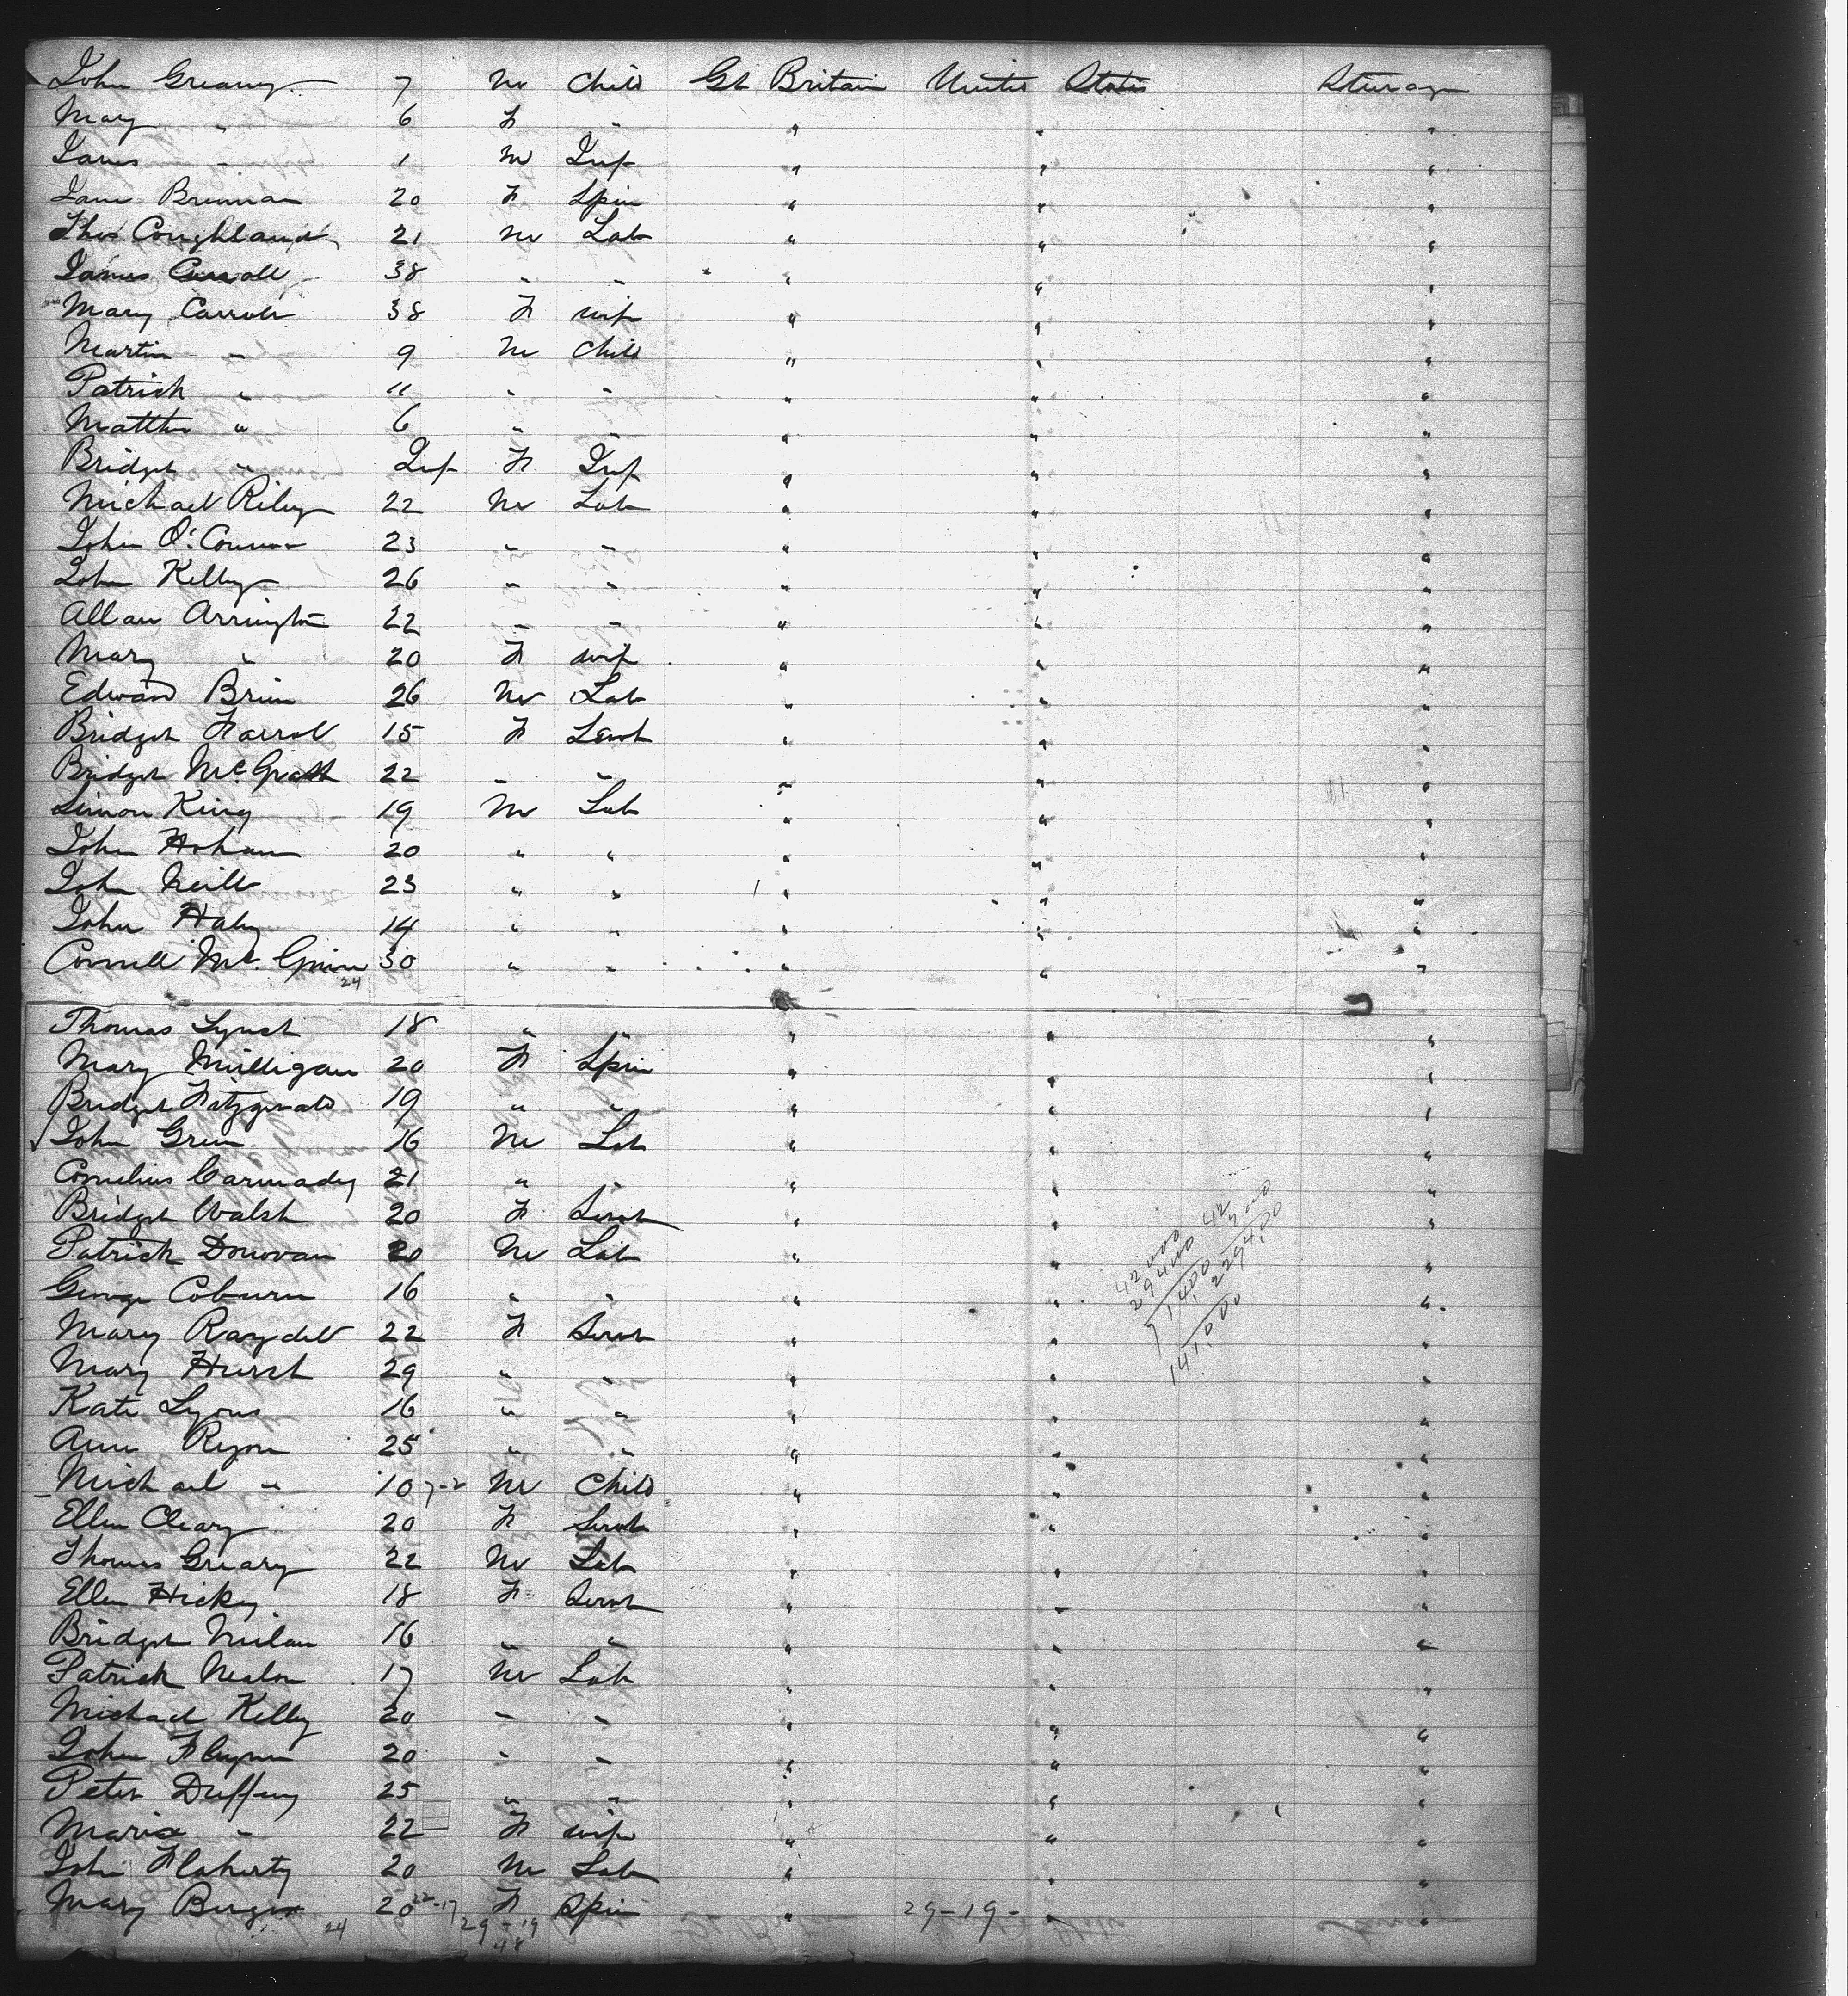 John Greany 7 M Child Gt Britain United States Steerage
Mary " 6 F " " " "
James " 1 M Inf " " "
Jane Brennan 20 F Spin " " "
Thos Coughland 21 M Lab " " "
James Carroll 38 " " " " "
Mary Carroll 38 F wife " " "
Martin " 9 M Child " " "
Patrick " 11 " " " " "
Matthew " 6 " " " " "
Bridget " Inf F Inf " " "
Michael Riley 22 M Lab " " "
John O'Connor 23 " " " " "
John Kelly 26 " " " " "
Allan Arrington 22 " " " " "
Mary " 20 F wife " " "
Edward Brien 26 M Lab " " "
Bridget Farrell 15 F Servt " " "
Bridget McGrath 22 " " " " "
Simon King 19 M Lab " " "
John Hohan 20 " " " " "
John Neill 23 " " " " "
John Haley 14 " " " " "
Connell Mc. 30 " " " " "
24
Thomas Lynch 18 " " " " "
Mary Milligan 20 F Spin " " "
Bridget Fitzgerald 19 " " " " "
John Green 16 M Lab " " "
Cornelius Carmady 21 " " " " "
Bridget Walsh 20 F Servt " " "
Patrick Donovan 20 M Lab " " "
George Coburn 16 " " " " "
Mary Raydell 22 F Servt " " "
Mary Hurst 29 " " " " "
Kate Lyons 16 " " " " "
Ann Ryan 25 " " " " "
Michael " 10 7-2 M Child " " "
Ellen Cleary 20 F Servt " " "
Thomas Greary 22 M Lab " " "
Ellen Hickey 18 F Servt " " "
Bridget Milan 16 " " " " "
Patrick Nealon 17 M Lab " " "
Michael Kelly 20 " " " " "
John Flynn 20 " " " " "
Peter Duffey 25 " " " " "
Maria " 22 F wife " " "
John Flaherty 20 M Lab " " "
Mary 20 22-17 F Spin " 29-19- " "
24 29-19
48